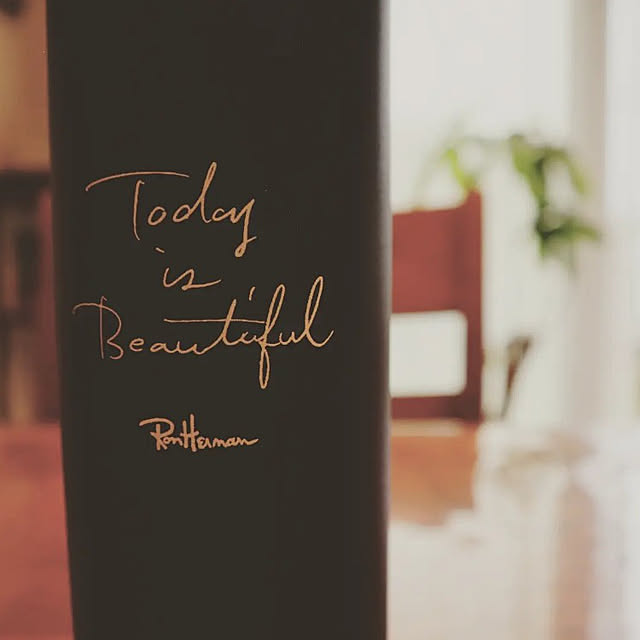 Today
is
Beautiful
RonHerman